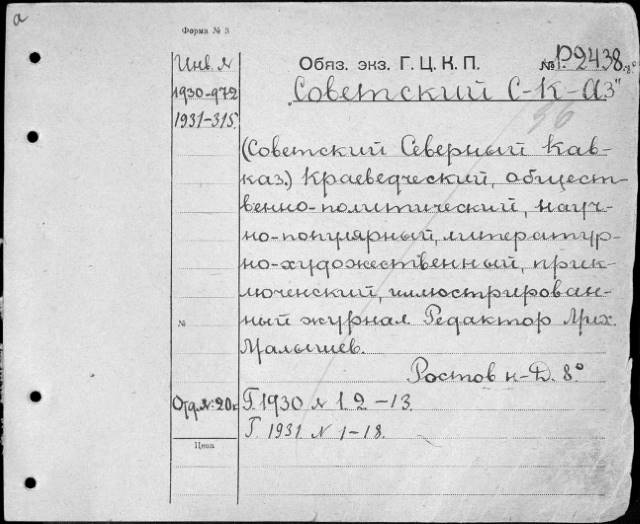 а
Форма № 3
Инв. №
1930-972
1931-315
Обяз. экз. Г. Ц. К. П.
№ Р2438 8°
„Советский С-К-Аз"
36
(Советский Северный Кав-
каз.) Краеведческий, общест-
венно-политический, науч-
но-популярный, литератур-
но-художественный, прик-
люченский, иллюстрирован-
ный журнал. Редактор Мих.
Малышев.
Ростов н-Д. 8°
№
Отд. №: 20к
Г. 1930 № 1. 2 -13.
Г. 1931 № 1-18.
Цена